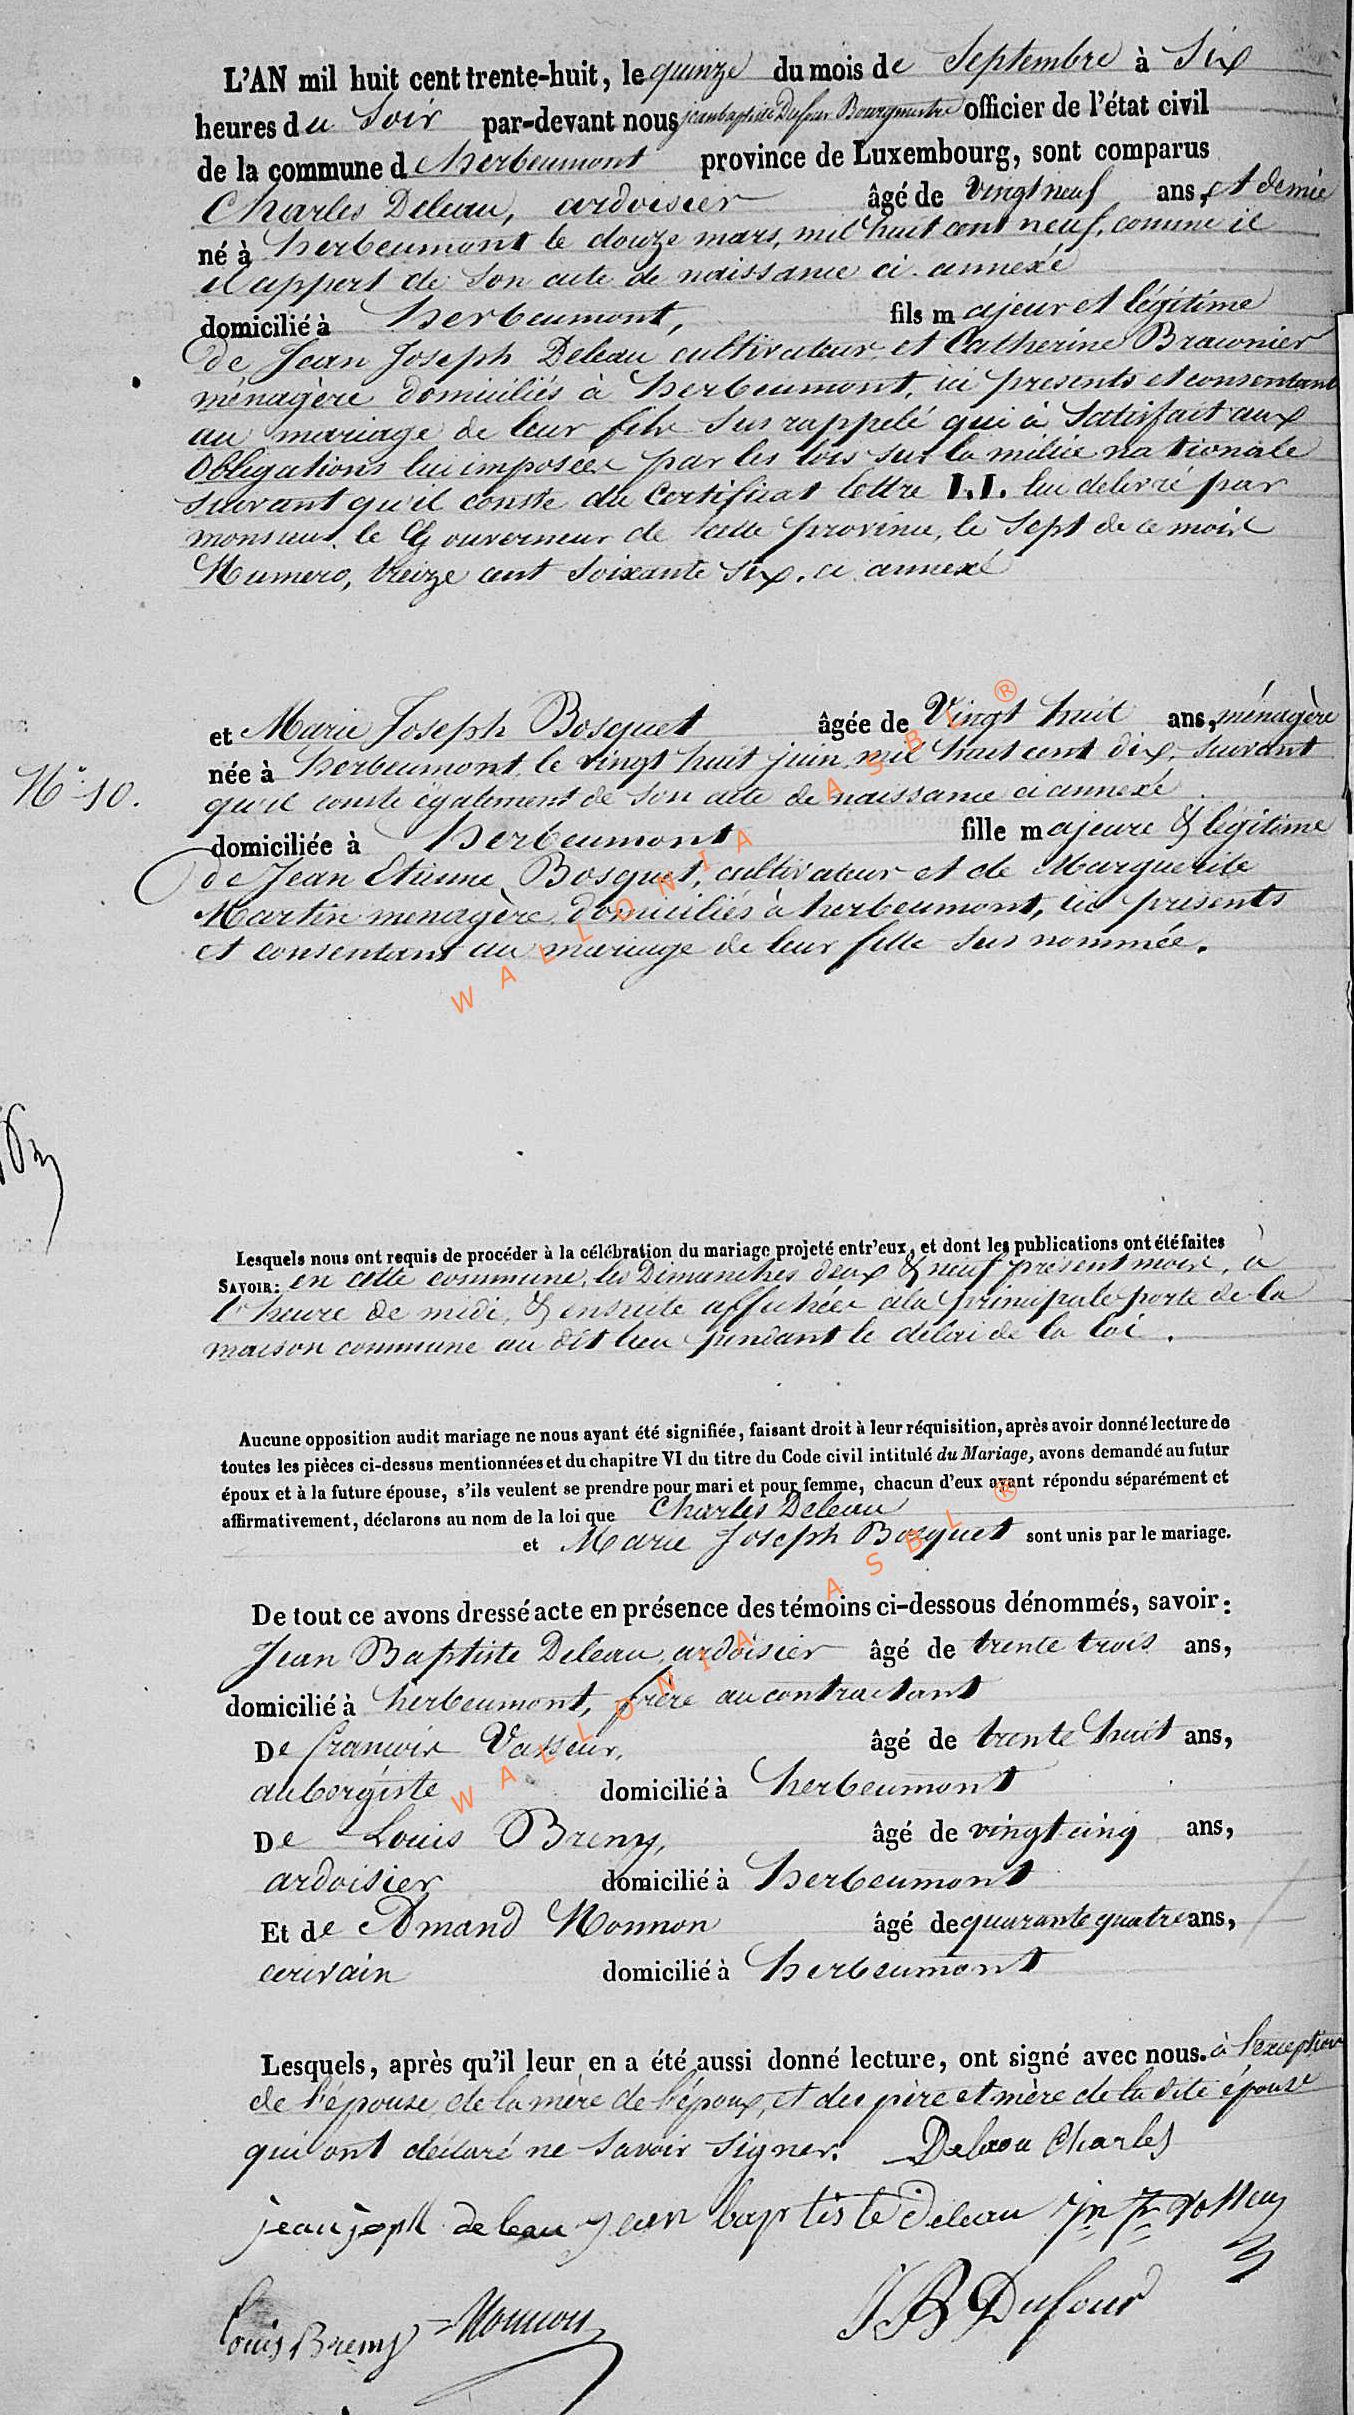 L'AN mil huit cent trente-huit, le quinze du mois de Septembre à Six
heures du Soir par-devant nous jean baptiste Dufour Bourgmestre officier de l'état civil
de la commune d'herbeumont province de Luxembourg, sont comparus
Charles Deleau, ardoisier âgé de vingt neuf ans, et demie
né à herbeumont le douze mars, mil huit cent neuf, comme il
il appert de son acte de naissance ci-annexé
domicilié à herbeumont, fils majeur et légitime
de Jean Joseph Deleau cultivateur et Catherine Brawnier
ménagère domiciliés à herbeumont, ici presents et consentant
au mariage de leur fils susrappelé qui à Satisfait aux
Obligations lui imposées par les lois sur la milice nationale
suivant qu'il conste du Certificat lettre I.I. lui delivré par
monsieur le Gouverneur de cette province, le sept de ce mois
Numero, treize cent soixante six. ci annexé
et Marie Joseph Bosquet âgée de Vingt huit ans, ménagère
née à herbeumont, le vingt huit juin mil huit cent dix, suivant
N° 10.
qu'il conste également de son acte de naissance ci annexé
domiciliée à herbeumont fille majeure & légitime
de Jean Etienne Bosquet, cultivateur et de Marguerite
Martin menagère domiciliés à herbeumont, ici présents
et consentant au mariage de leur fille sus nommée.
WALLONIA ASBL ®
Lesquels nous ont requis de procéder à la célébration du mariage projeté entr'eux, et dont les publications ont été faites
SAVOIR: en cette commune, les Dimanches deux & neuf présent mois, à
l'heure de midi, & ensuite affichées à la principale porte de la
maison commune au dit lieu pendant le délai de la loi.
Aucune opposition audit mariage ne nous ayant été signifiée, faisant droit à leur réquisition, après avoir donné lecture de
toutes les pièces ci-dessus mentionnées et du chapitre VI du titre du Code civil intitulé du Mariage, avons demandé au futur
époux et à la future épouse, s'ils veulent se prendre pour mari et pour femme, chacun d'eux ayant répondu séparément et
affirmativement, déclarons au nom de la loi que Charles Deleau
et Marie Joseph Bosquet sont unis par le mariage.
De tout ce avons dressé acte en présence des témoins ci-dessous dénommés, savoir:
Jean Baptiste Deleau, ardoisier âgé de trente trois ans,
domicilié à herbeumont, frère au contractant
De francois Vasseur, âgé de trente huit ans,
aubergiste domicilié à herbeumont
De Louis Bremy, âgé de vingt cinq ans,
ardoisier domicilié à herbeumont
Et de Amand Monnon âgé de quarante quatre ans,
ecrivain domicilié à herbeumont
WALLONIA ASBL ®
Lesquels, après qu'il leur en a été aussi donné lecture, ont signé avec nous. à l'exception
de l'épouse, de la mère de l'époux, et des père et mère de la dite épouse
qui ont déclaré ne savoir signer. Deleau Charles
jean joseph deleau jean baptiste deleau
Louis Bremy Monnon JB Dufour